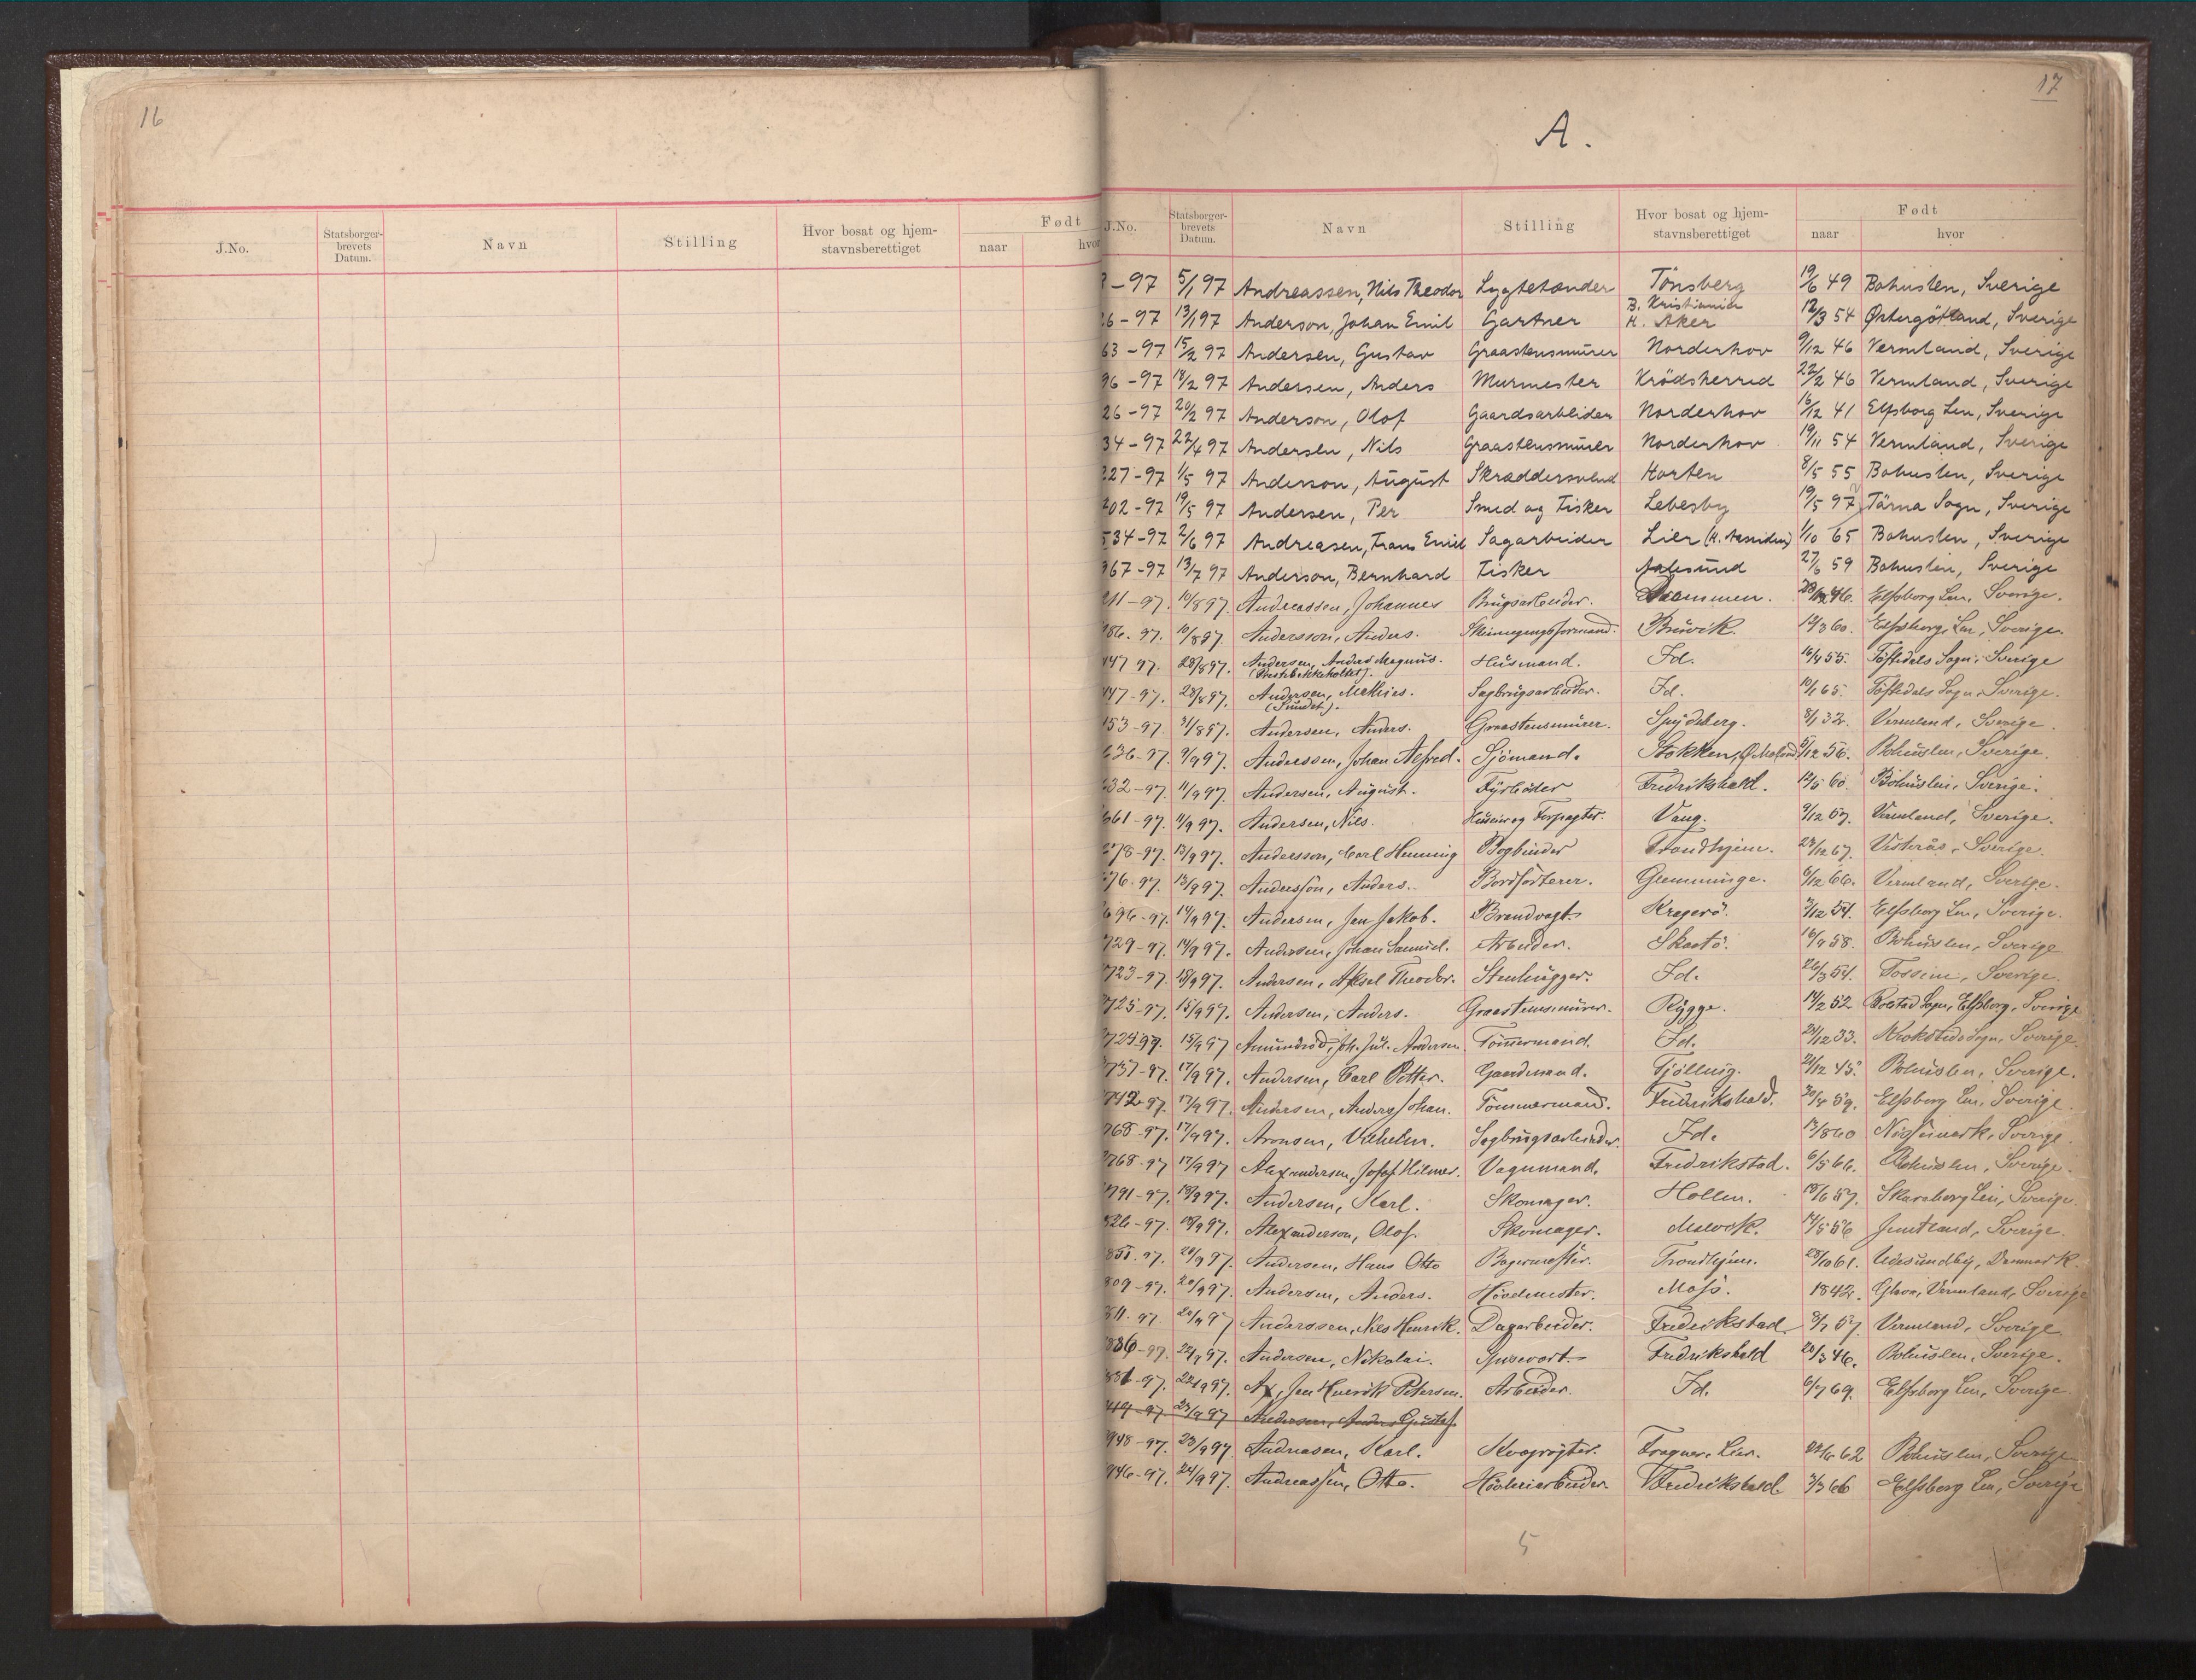 16
J.No.
Statsborger-
brevets
Datum.
Navn
Stilling
Hvor bosat og hjem-
stavnsberettiget
Født
naar
hvor
17
A.
J.No.
Statsborger-
brevets
Datum.
Navn
Stilling
Hvor bosat og hjem-
stavnsberettiget
Født
naar
hvor
-97 5/1 97 Andreassen, Nils Theodor Lygtetænder Tönsberg 19/6 49 Bohuslen, Sverige
26-97 13/1 97 Anderson, Johan Emil Gartner B. Kristiania H. Aker 12/3 54 Östergötland, Sverige
63-97 15/2 97 Andersen, Gustav Graastensmurer Norderhov 9/12 46 Vermland, Sverige
96-97 18/2 97 Andersen, Anders Murmester Krödsherred 22/2 46 Vermland, Sverige
26-97 20/2 97 Anderson, Olof Gaardsarbeider Norderhov 16/12 41 Elfsborg Len, Sverige
34-97 22/4 97 Andersen, Nils Graastensmurer Norderhov 19/11 54 Vermland, Sverige
227-97 1/5 97 Anderson, August Skræddersvend Horten 8/5 55 Bohuslen, Sverige
202-97 19/5 97 Andersen, Per Smed og Fisker Lebesby 19/5 97 Tärna Sogn, Sverige
534-97 2/6 97 Andreasen, Frans Emil Sagarbeider Lier 1/10 65 Bohuslen, Sverige
967-97 13/7 97 Anderson, Bernhard Fisker Aalesund 59 Bohuslen, Sverige
211-97. 10/8 97. Andreassen, Johannes Brugsarbeider. Drammen. 46. Elfsborg Len, Sverige.
186-97. 10/8 97. Andersson, Anders. Skinnegangsformand. Bruvik. 12/3 60. Elfsborg Len, Sverige.
447 97. 28/8 97. Andersen, Anders Magnus. Husmand. Id. 16/4 55. Töftedals Sogn, Sverige
(Prestebakkeholtet).
447-97. 28/8 97. Andersen, Mathies. Sagbrugsarbeider. Id. 10/1 65. Töftedals Sogn, Sverige.
(Sundet).
153-97. 31/8 97. Andersen, Anders. Graastensmurer. Spydeberg. 8/1 32. Vermland, Sverige.
636-97. 9/9 97. Anderssen, Johan Alfred. Sjömand. Stokken, 56. Bohuslen, Sverige.
632-97. 11/9 97. Andersen, August. Fyrböder Fredrikshald. 60. Bohuslen, Sverige.
661-97. 11/9 97. Andersen, Nils. Husmir og Forpagter. Vang. 9/12 57. Vermland, Sverige.
278-97. 13/9 97. Andersson, Carl Henning Bogbinder Trondhjem. 67. Vesterås, Sverige.
276-97. 13/9 97. Andersson, Anders. Bordsorterer. Glemminge. 6/12 66. Vermland, Sverige.
696-97. 14/9 97. Andersen, Jan Jakob. Brandvagt. Kragerö. 54. Elfsborg Len, Sverige.
729-97. 14/9 97. Andersen, Johan Samuel. Arbeider. Skaatö. 58. Bohuslen, Sverige
723-97. 15/9 97. Andersen, Aksel Theodor. Stenhugger. Id. 26/3 54. Fossum, Sverige.
725-97. 15/9 97. Andersen, Anders. Graastensmurer. Rygge. 14/2 52. Sogn, Elfsborg, Sverige
15/9 97 Amundröd, Joh. Jul. Andersen. Tömmermand. Id. 33. Krokstads Sogn, Sverige.
737-97. 17/9 97. Andersen, Carl Petter. Gaardmand. Fjölling. 24/12 45. Bohuslen, Sverige.
742-97. 17/9 97. Andersen, Anders Johan. Tömmermand. Fredrikshald. 59. Elfsborg Len, Sverige.
768-97. 17/9 97. Aronsen, Vilhelm. Sagbrugsarbeider. Id. 13/8 60 Nösemark, Sverige.
768-97 17/9 97 Alexandersen, Josef Hilmer. Vognmand. Fredrikstad. 6/5 66. Bohuslen, Sverige.
791-97. 18/9 97. Andersen, Karl. Skomager. Hollen. 57. Skaraborg Len, Sverige.
826-97. 18/9 97. Alexanderson, Olof. Skomager. Malvik. 14/5 56 Jemtland, Sverige.
851-97. 20/9 97. Andersen, Hans Otto Bagermester. Trondhjem. 28/10 61. Danmark.
809-97. 20/9 97. Andersen, Anders. Hövlemester. Moss. 1842. Glava, Vermland, Sverige
811-97. 20/9 97 Anderssen, Nils Henrik. Dagarbeider. Fredrikstad. 8/7 57. Vermland, Sverige.
836-97. 22/9 97. Andersen, Nikolai. Fredrikshald 20/3 46. Bohuslen, Sverige.
831-97. 22/9 97. Ax, Jan Henrik Petersen. Arbeider. Id. 6/7 69. Elfsborg Len, Sverige.
449-97. 23/9 97 Andersen, Anders Gustaf.
948-97. 23/9 97. Andreasen, Karl. Kvægrögter. Fragner, Lier. 62 Bohuslen, Sverige
946-97. 24/9 97. Andreassen, Otto. Hövleriarbeider. Fredrikshald. 3/3 66 Elfsborg Len, Sverige
5